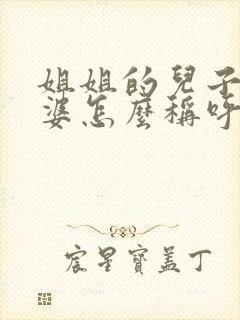 姐姐的兒子
婆怎麼稱呼
宸星寶盖丁